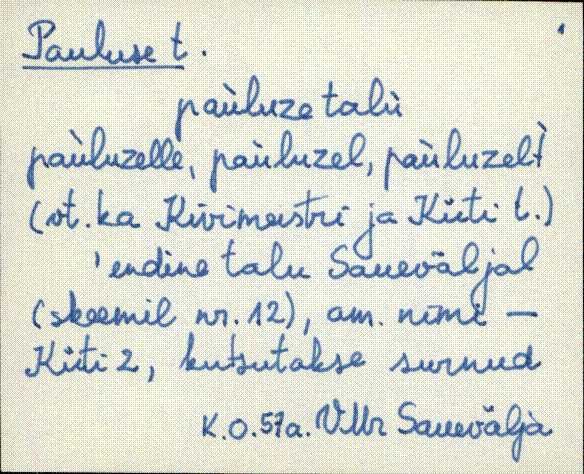 Pauluse t.
paùluze talù
paùluzelle, paùluzel, paùluzelt
(vt. ka Kivimeistri ja Küti t.)
'endine talu Sauevaljal
(skeemil nr. 12), am. nimi —
Küti 2, kutsutakse surnud
K.O. 57a. VMr Sauevälja